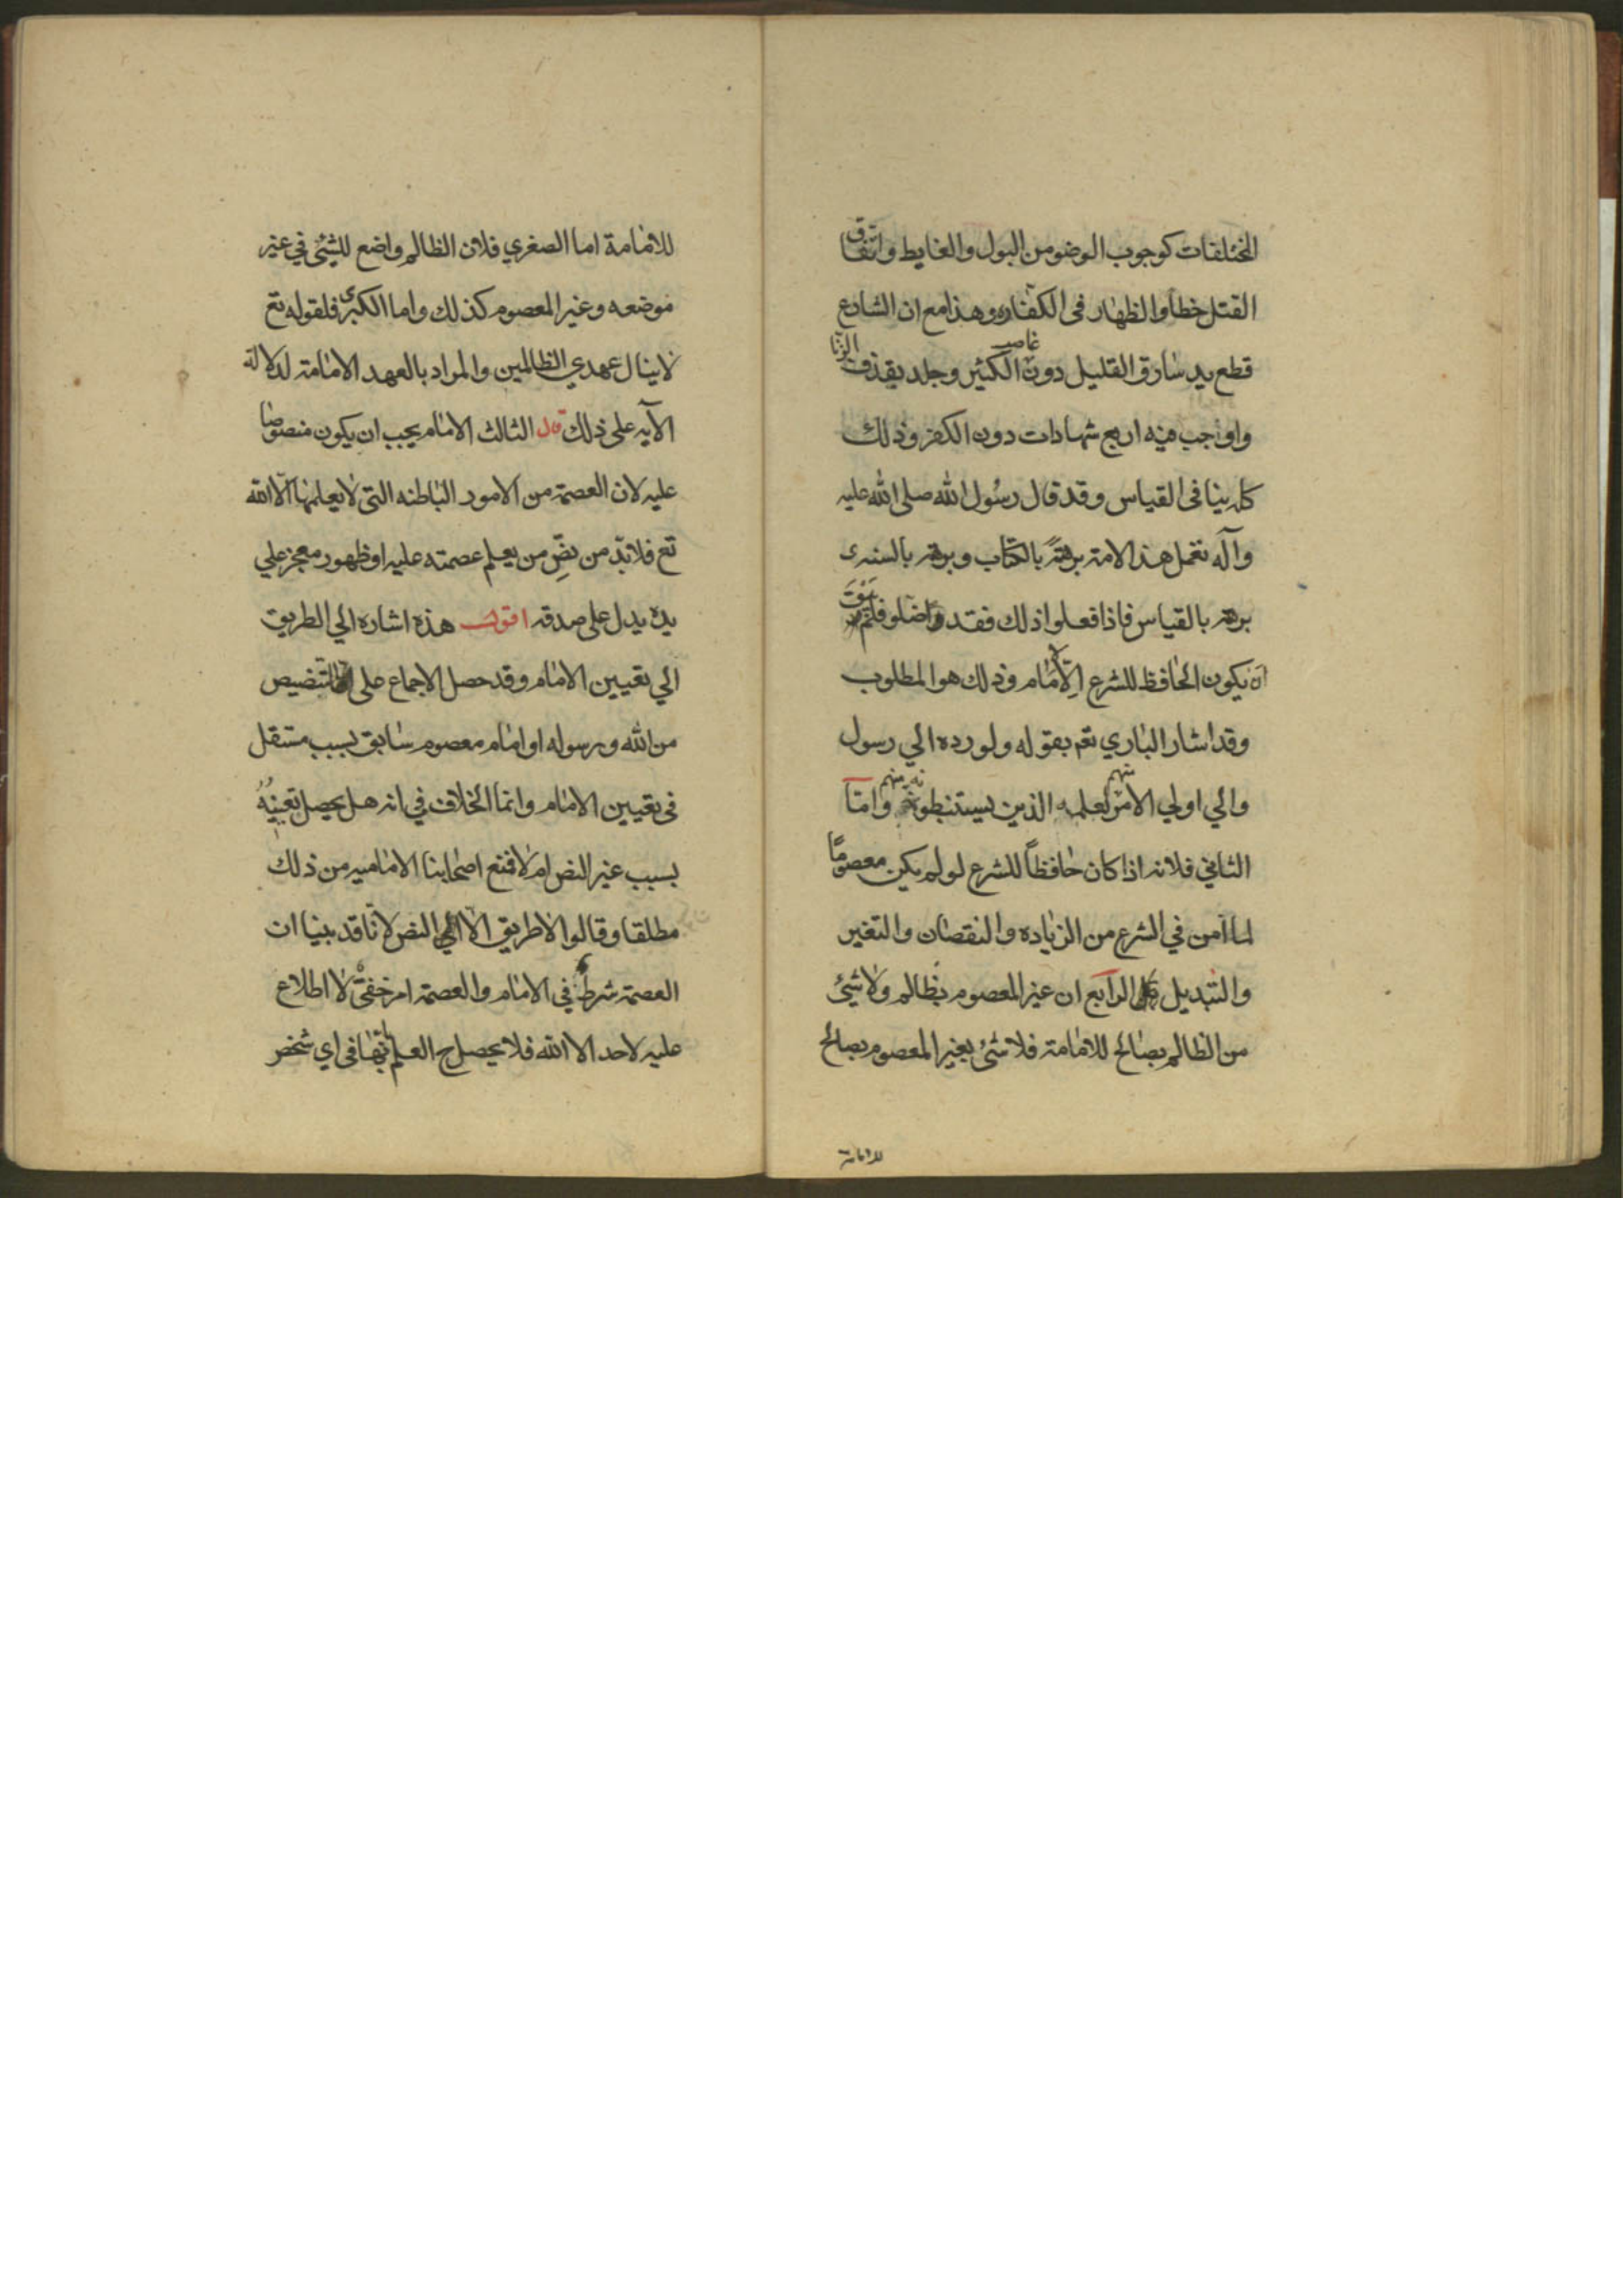 المختلفات كوجوب الوضو من البول والغايط واتفاق
القتل خطأ والظهار فى الكفاره وهذا مع ان الشارع
قطع يد سارق القليل دون غاصب الكثير وجلد بقذف الزنا
واوجب فيه اربع شهادات دون الكفر وذلك
كله ينافى القياس وقد قال رسول الله صلى الله عليه
وآله تعمل هذا الامة برهةً بالكتاب وبرهة بالسنه و
برهة بالقياس فاذا فعلوا ذلك فقد واضلو فلم يبق
ان يكون الحافظ للشرع الا الامام وذلك هو المطلوب
وقد اشار الباري تعم بقوله ولو رده الي رسول
والي اولي الامر منهم لعلمه الذين يستنبطونه منهم وامّا
الثاني فلانه اذا كان حافظاً للشرع لو لم يكن معصومًا
لما آمن في الشرع من الزياده والنقصان والتغير
والتبديل قال الرابع ان غير المعصوم بظالم ولا شيئ
من الظالم بصالح للامامة فلا شئ بغير المعصوم بصالح
للامامة
للامامة اما الصغري فلان الظالم واضع للشيئ في غير
موضعه وغير المعصوم كذلك واما الكبرى فلقوله تع
لا ينال عهدي الظالمين والمراد بالعهد الامامة لدلالة
الآيه على ذلك قال الثالث الامام يجب ان يكون منصوصا
عليه لان العصمة من الامور الباطنه التى لا يعلمها الا الله
تع فلابدّ من نصِّ من يعلم عصمته عليه او ظهور معجز علي
يده يدل على صدقه اقول هذه اشاره الي الطريق
الي تعيين الامام وقد حصل الاجماع على التنصيص
من الله ورسوله او امام معصوم سابق بسبب مستقل
فى تعيين الامام وانما الخلاف في انه هل يحصل تعينهُ
بسبب غير النص ام لا فمنع اصحابنا الاماميه من ذلك
مطلقا وقالوا لا طريق الا الي النص لانّا قد بينا ان
العصمة شرط في الامام والعصمة امر خفىّ لا اطلاع
عليه لاحد الا الله فلا يحصل ح العلم بانّها فى اي شخص